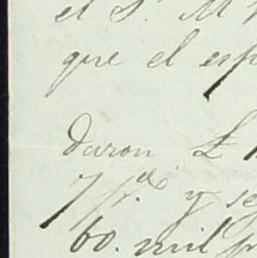 el S. M
que el esp
daron £
7 p.do y se
60. mil p